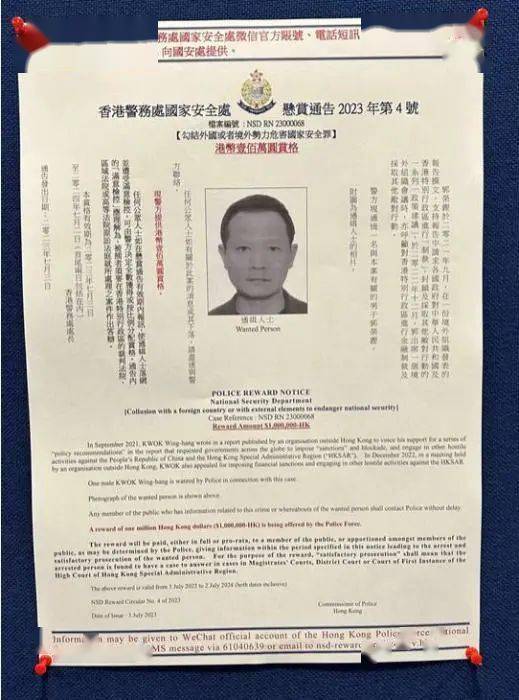 務處國家安全處微信官方賬號、電話短訊
向國安處提供。
香港警務處國家安全處 懸賞通告 2023 年第 4 號
檔案編號：NSD RN 23000068
【勾結外國或者境外勢力危害國家安全罪】
港幣壹佰萬圓賞格
郭榮鏗於二○二一年九月，在一份境外組織發表的
報告撰文，支持報告中請求各國政府對中華人民共和國及
香港特別行政區進行「制裁」、封鎖及採取其他敵對行動的
一系列「政策建議」。於二○二二年十二月，郭出席一個境
外組織會議時，亦呼籲對香港特別行政區進行金融制裁及
採取其他敵對行動。
警方現通緝一名與本案有關的男子郭榮鏗。
附圖為通緝人士的相片。
任何公眾人士如有關於此案的消息或其下落，請盡速與警
方聯絡。
現警方提供港幣壹佰萬圓賞格。
任何公眾人士如在懸賞通告有效期內報訊，使通緝人士落網
並遭受滿意檢控，可由警方決定全數獲得或按比例分配賞格。通告內
的「滿意檢控」應理解為，被捕者須要在香港特別行政區的裁判法院、
區域法院或高等法院原訟法庭就所處理之案件作出答辯。
本賞格有效期為二○二三年七月三日
至二○二四年七月二日（首尾兩日包括在內）
香港警務處處長
通告發出日期：二○二三年七月三日
通緝人士
Wanted Person
POLICE REWARD NOTICE
National Security Department
[Collusion with a foreign country or with external elements to endanger national security]
Case Reference : NSD RN 23000068
Reward Amount $1,000,000-HK
In September 2021, KWOK Wing-hang wrote in a report published by an organisation outside Hong Kong to voice his support for a series of
"policy recommendations" in the report that requested governments across the globe to impose "sanctions" and blockade, and engage in other hostile
activities against the People's Republic of China and the Hong Kong Special Administrative Region ("HKSAR"). In December 2022, in a meeting held
by an organisation outside Hong Kong, KWOK also appealed for imposing financial sanctions and engaging in other hostile activities against the HKSAR.
One male KWOK Wing-hang is wanted by Police in connection with this case.
Photograph of the wanted person is shown above.
Any member of the public who has information related to this crime or whereabouts of the wanted person shall contact Police without delay.
A reward of one million Hong Kong dollars ($1,000,000-HK) is being offered by the Police Force.
The reward will be paid, either in full or pro-rata, to a member of the public, or apportioned amongst members of the
public, as may be determined by the Police, giving information within the period specified in this notice leading to the arrest and
satisfactory prosecution of the wanted person. For the purpose of the reward, "satisfactory prosecution" shall mean that the
arrested person is found to have a case to answer in cases in Magistrates' Courts, District Court or Court of First Instance of the
High Court of Hong Kong Special Administrative Region.
The above reward is valid from 3 July 2023 to 2 July 2024 (both dates inclusive)
NSD Reward Circular No. 4 of 2023
Commissioner of Police
Hong Kong
Date of Issue : 3 July 2023
Information may be given to WeChat official account of the Hong Kong Police Force
MS message via 61040639 or email to nsd-reward